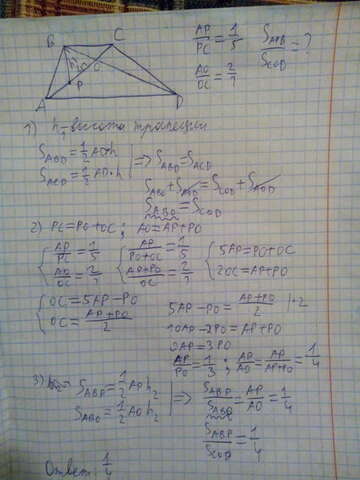 B C
h₂ O
P
A D
AP/PC = 1/5 S_APB/S_COD = ?
AO/OC = 2/1
1) h₁ - высота трапеции
S_ABD = 1/2 AD·h
S_ACD = 1/2 AD·h | => S_ABD = S_ACD
S_ABO + S_AOD = S_COD + S_AOD
S_ABO = S_COD
2) PC = PO + OC ; AO = AP + PO
{ AP/PC = 1/5 { AP/(PO+OC) = 1/5 { 5AP = PO + OC
AO/OC = 2/1 (AP+PO)/OC = 2/1 2OC = AP + PO
{ OC = 5AP - PO 5AP - PO = (AP+PO)/2 |·2
OC = (AP+PO)/2 10AP - 2PO = AP + PO
9AP = 3PO
AP/PO = 1/3 ; AP/AO = AP/(AP+PO) = 1/4
3) S_ABP = 1/2 AP h₂
S_ABO = 1/2 AO h₂ | => S_ABP/S_ABO = AP/AO = 1/4
S_ABP/S_COD = 1/4
Ответ: 1/4